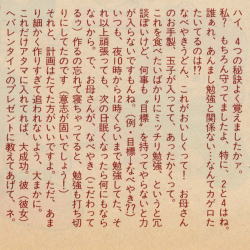 ーーつの秘訣よく覚えましたか。
私？　もちろん守りましたよ、特に、2と4はね。
誰あれ、あんまり勉強と関係ない、なんてカゲロた
たいてるのは!?
なべやきうどん、これがおいしくって！　お母さん
のお手製、玉子が入ってて、あったかくって。
これを食べたいばかりにミッチリ勉強、というと冗
談ぽいけど、何事も"目標"を持ってやらないと力
が入らないですもんね。（例、目標＝なべやき?）
いつも、夜10時か12時ぐらいまで勉強してた。そ
れ以上頑張っても、次の日眠くなったら何にもなら
ないから。で、お母さんが、なべやき（こだわって
るゥ）作るの忘れて寝ちゃってると、勉強も打ち切
りにしてたのです（意志が固いでしょう!）
それと、計画はたてた方がいいですよ。ただ、あま
り細かく作りすぎて追われないよう、大まかに。
これだけアタマに入れておれば、大成功。彼（彼女）
にバレンタインのプレゼントに教えてあげて、ネ。